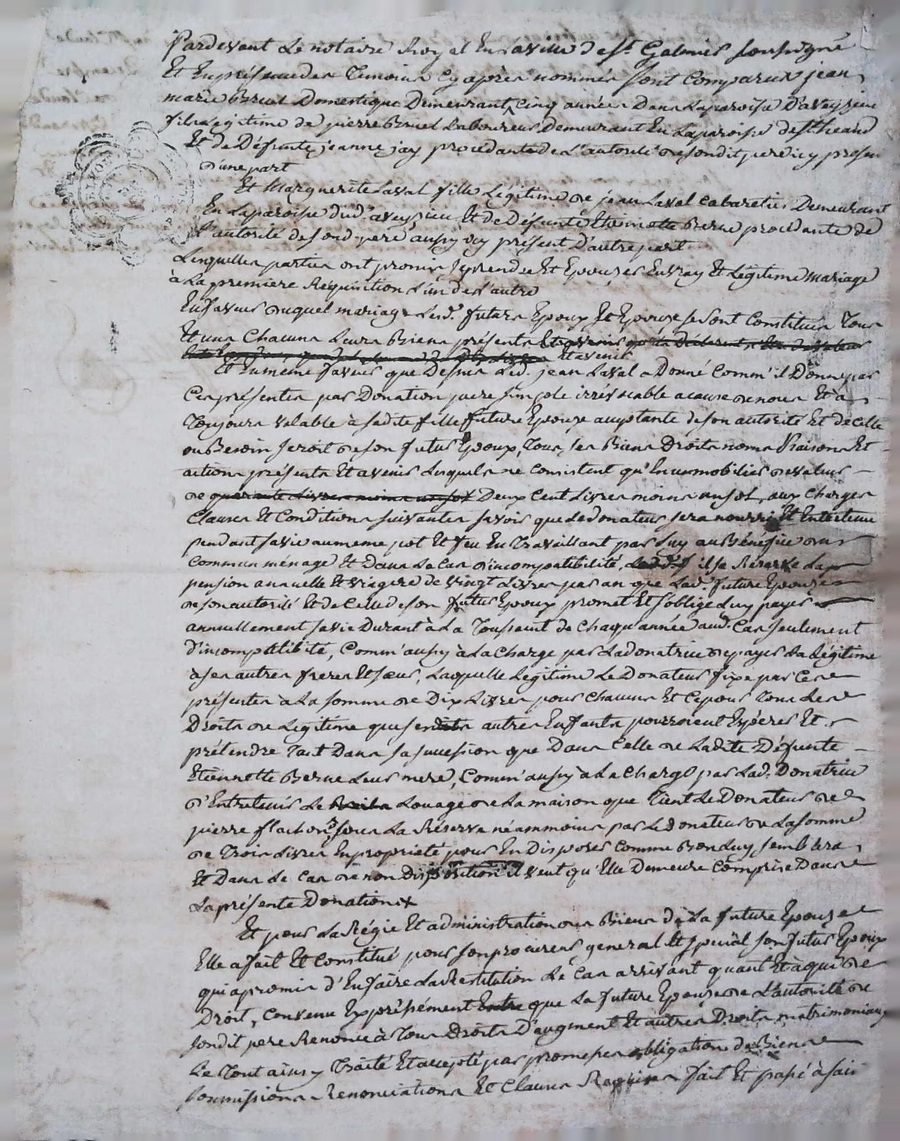 Pardevant Le notaire Royal En la ville de St Galmier soussigné
Et En présence des Temoins Cy après nommés sont comparus jean
marie Bruel Domestique Demeurant cinq années Dans Laparoisse D'aveyzieu
fils legitime de pierre Bruel Laboureur demeurant En Laparoisse de
Et de Défunte jeanne jay procedant de L'autorité de sondit pere icy présent
D'une part
Et Marguerite Laval fille Légitime de jean Laval Cabaretier Demeurant
En Laparoisse dud. aveyzieu Et de Défunte Etiennette Berne procedante de
L'autorité de sond. pere aussy icy présent D'autre part
Lesquelles parties ont promis se prendre Et Epouser En vray Et Légitime mariage
à La premiere Requisition L'un de L'autre
En faveur duquel mariage Lesd. futurs Epoux Et Epouse se sont Constitués Tous
Et uns Chacuns Leurs Biens présents Et avenir
Et En meme faveur que Dessus Led. jean Laval a Donné Comm' il Donne par
Ces présentes par Donation pure simple irrévocable a cause de noces Et à
Toujours valable à sadite fille future Epouse acceptante de son autorité Et de celle
ou Besoin seroit de son futur Epoux, Tous ses Biens Droits noms Raisons Et
actions présents Et avenir Lesquels ne Consistent qu'En un mobilier de valeur
de quarante Livres moins un sol Deux Cent Livres moins un sol, aux Charges
Clauses Et Conditions suivantes savoir que Le donateur sera nourri Et Entretenu
pendant sa vie au meme pot Et feu En Travaillant par Luy au Bénéfice du
Commun ménage Et Dans Le Cas d'incompatibilité, il se Réserve La
pension annuelle Et viagere de vingt Livres par an que Lad. future Epouse
de son autorité Et de Celle de son futur Epoux promet Et s'oblige Luy payer
annuellement sa vie Durant à La Toussaint de Chaque année aud. Cas seulement
D'incompatibilité, Comm' aussy à La Charge par La donatrice de payer La Légitime
à ses autres freres Et sœurs, Laquelle Légitime Le Donateur fixe par Ces
présentes à La somme de Dix Livres pour Chacun Et Ce pour Tous Les
Droits de Légitime que ses autres Enfants pourroient Espérer Et
prétendre Tant Dans sa succession que Dans Celle de Ladite Défunte
Etiennette Berne Leur mere, Comm' aussy à La Charge par Lad. Donatrice
D'Entretenir Le Louage de La maison que Tient Le Donateur de
pierre flachon, sous La Réserve néammoins par Le donateur de La somme
de Trois Livres En propriété pour En Disposer Comme Bon Luy semblera,
Et Dans Le Cas de non Disposition il veut qu'Elle Demeure Comprise Dans
La présente Donation
Et pour La Régie Et administration des Biens de La future Epouse
Elle a fait Et Constitué pour son procureur general Et spécial son futur Epoux
qui a promis d'En faire La Restitution Le Cas arrivant quant Et à qui de
Droit, Convenu Expréssément que La future Epouse de L'autorité de
sondit pere Renonce à Tous Droits D'augment Et autres Droits matrimoniaux
Le Tout ainsy Traité Et accepté par promesses obligation de Biens
soumissions Renonciations Et Clauses Requises fait Et passé à